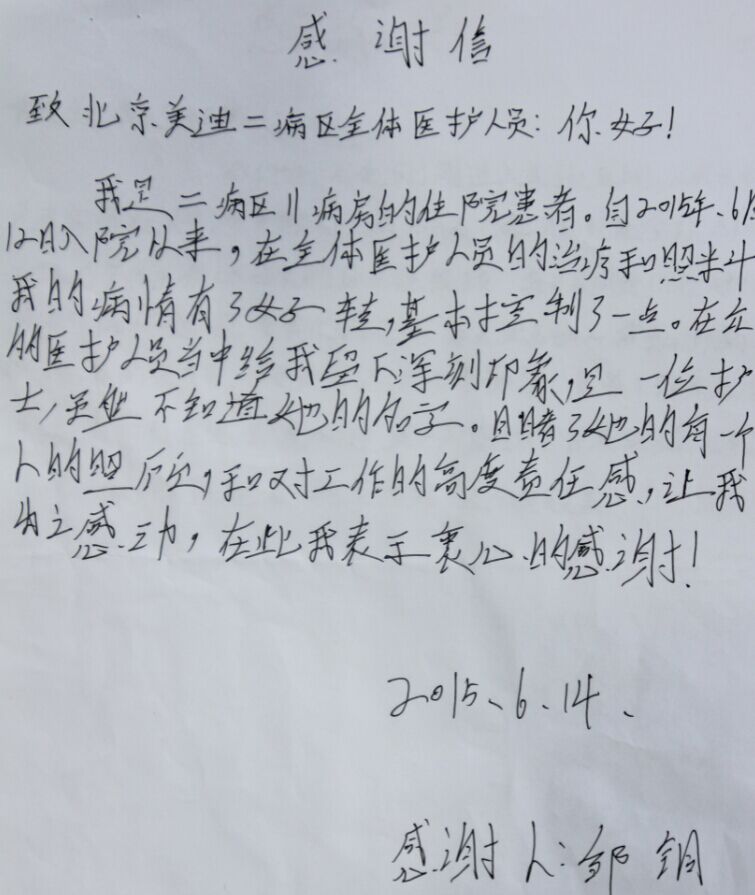 感谢信
致北京美迪二病区全体医护人员：你好！
我是二病区11病房的住院患者。自2015年、6月
12日入院以来，在全体医护人员的治疗和照料
我的病情有了好转，基本控制了一点。在
的医护人员当中给我留下深刻印象，是一位护
士，虽然不知道她的名字。目睹了她的每一个
人的照顾，和对工作的高度责任感，让我
为之感动，在此我表示衷心的感谢！
2015、6、14、
感谢人：邹